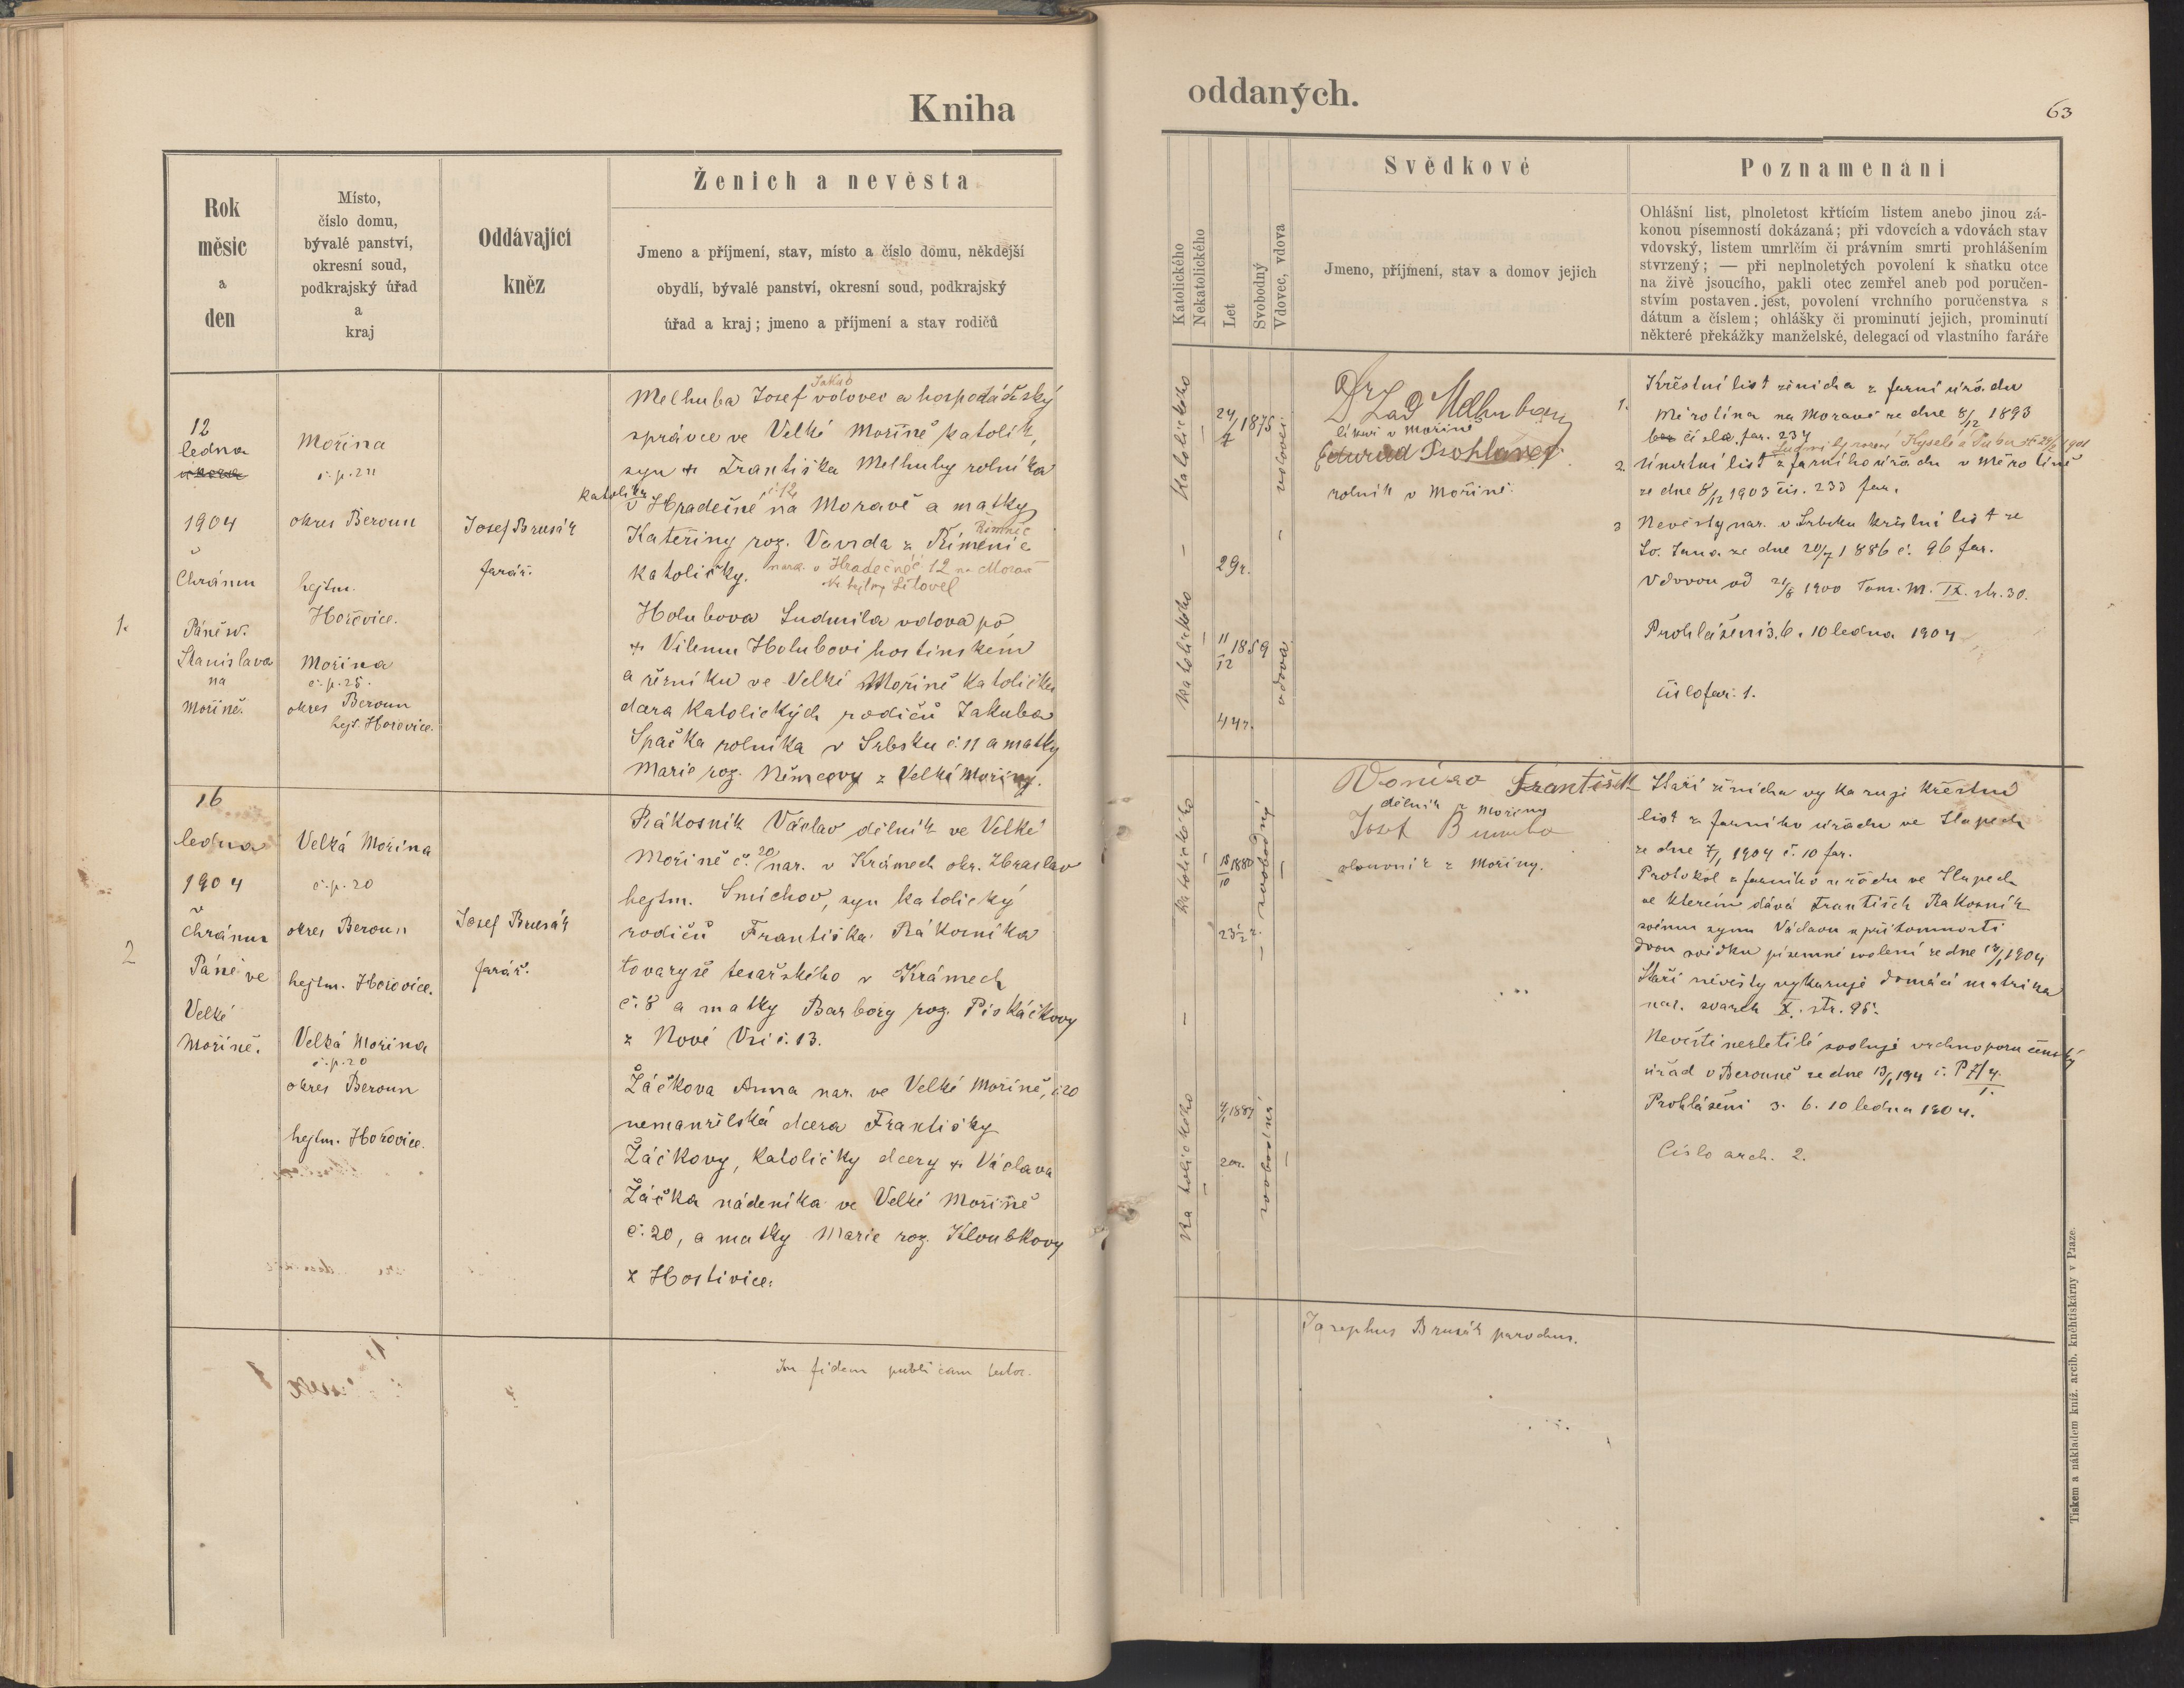 Kniha
oddaných.
63
Rok
měsíc
a
den
Místo,
číslo domu,
bývalé panství,
okresní soud,
podkrajský úřad
a
kraj
Oddávající
kněz
Ženich a nevěsta
Jmeno a příjmení, stav, místo a číslo domu, někdejší
obydlí, bývalé panství, okresní soud, podkrajský
úřad a kraj; jmeno a příjmení a stav rodičů
Katolického
Nekatolického
Let
Svobodný
Vdovec, vdova
Svědkové
Jmeno, příjmení, stav a domov jejich
Poznamenání
Ohlášní list, plnoletost křtícím listem anebo jinou zá-
konou písemností dokázaná; při vdovcích a vdovách stav
vdovský, listem umrlčím či právním smrti prohlášením
stvrzený; — při neplnoletých povolení k sňatku otce
na živě jsoucího, pakli otec zemřel aneb pod poručen-
stvím postaven jest, povolení vrchního poručenstva s
dátum a číslem; ohlášky či prominutí jejich, prominutí
některé překážky manželské, delegací od vlastního faráře
1.
12
ledna
1904
Chrámu
Páně sv.
Stanislava
na
Mořině.
Mořina
okres Beroun
hejtm.
Hořovice.
Mořina
č.p. 25.
okres Beroun
hejt. Hořovice.
Josef Brusák
farář.
Jakub
Melhuba Josef vdovec a hospodářský
správce ve Velké Mořině katolík,
syn + Františka Melhuby rolníka
katolíka
č. 12
v Hradečné na Moravě a matky
Kateřiny roz. Vavrda z Řimenic
katoličky. nar. v Hradečné č 12 na Moravě
Litovel
Holubova Ludmila vdova po
+ Vilému Holubovi hostinském
a řezníku ve Velké Mořině katolička
dcera katolických rodičů Jakuba
Špačka rolníka v Srbsku č. 11 a matky
Marie roz. Němcovy z Velké Mořiny.
katolického
24/7 1875
29r.
vdovec
katolického
11/12 1859
44r.
vdova
Dr Lad Melhuba
lékař v Mořině
rolník v Mořině.
1. Křestní list ženicha z farní úřadu
Měrotína na Moravě ze dne 8/12 1893
čísla far. 234
2. Úmrtní list z farního úřadu v Měrotíně
ze dne 8/12 1903 čís. 233 far.
3 Nevěsty nar. v Srbsku křestní list ze
Sv. Jana ze dne 20/7 1886 č. 96 far.
Vdovou od 21/8 1900 Tom. M. IX. str. 30.
Prohlášení 3. 6. 10 ledna 1904
Číslo far. 1.
2
16
ledna
1904
Chrámu
Páně ve
Velké
Mořině.
Velká Mořina
č.p. 20
okres Beroun
hejtm. Hořovice.
Velká Mořina
č.p. 20
okres Beroun
hejtm. Hořovice.
Josef Brusák
farář.
Rákosník Václav dělník ve Velké
Mořině č. 20 nar. v Krámech okr. Zbraslav
hejtm. Smíchov, syn katolický
rodičů Františka Rákosníka
tovaryše tesařského v Krámech
č. 8 a matky Barbory roz. Piskáčkovy
z Nové Vsi č. 13.
Žáčkova Anna nar. ve Velké Mořině, č 20
nemanželská dcera Františky
Žáčkovy, katoličky dcery + Václava
Žáčka nádeníka ve Velké Mořině
č. 20, a matky Marie roz. Kloubkovy
z Hostivice.
katolického
23 1/2 r.
svobodný
katolického
20r.
svobodná
František
dělník z Mořiny
Josef
z Mořiny.
Stáří ženicha vykazuje křestní
list z farního úřadu ve Slapech
ze dne 7/1 1904 č. 10 far.
Protokol z farního úřadu ve Slapech
ve kterém dává František Rákosník
svému synu Václavu v přítomnosti
dvou svědků písemné svolení ze dne 1904
Stáří nevěsty vykazuje domácí matrika
nar. svazek X. str. 95.
Nevěstě nezletilé svoluje vrchnoporučenský
úřad v Berouně ze dne 13/1 1904 č. P 7/4
1.
Prohlášení 3. 6. 10 ledna 1904.
Číslo arch. 2.
In fidem publicam
Josephus Brusák parochus.
Tiskem a nákladem kníž. arcib. knihtiskárny v Praze.